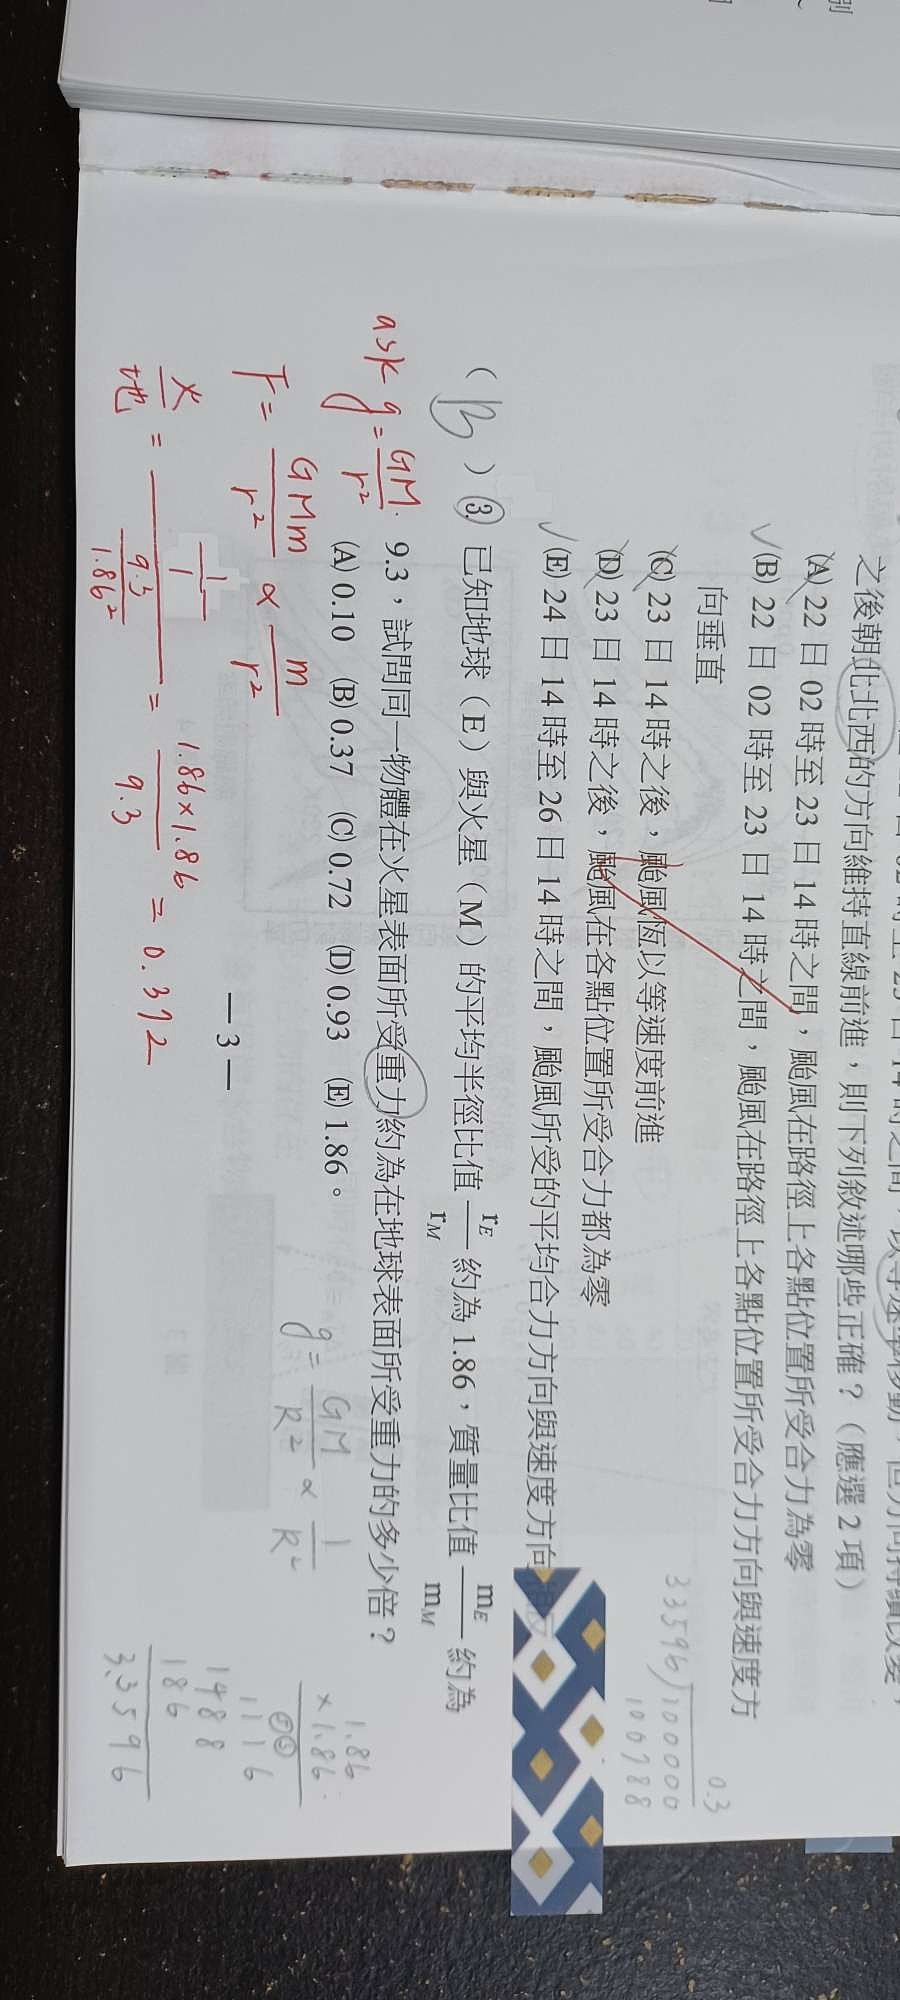 之後朝北北西的方向維持直線前進，則下列敘述哪些正確？（應選 2 項）
(A) 22 日 02 時至 23 日 14 時之間，颱風在路徑上各點位置所受合力為零
✓(B) 22 日 02 時至 23 日 14 時之間，颱風在路徑上各點位置所受合力方向與速度方
向垂直
(C) 23 日 14 時之後，颱風恆以等速度前進
(D) 23 日 14 時之後，颱風在各點位置所受合力都為零
✓(E) 24 日 14 時至 26 日 14 時之間，颱風所受的平均合力方向與速度方向
( B ) 3. 已知地球（E）與火星（M）的平均半徑比值 rE/rM 約為 1.86，質量比值 mE/mM 約為
9.3，試問同一物體在火星表面所受重力約為在地球表面所受重力的多少倍？
(A) 0.10 (B) 0.37 (C) 0.72 (D) 0.93 (E) 1.86。
ask g = GM/r²
F = GMm/r² ∝ m/r²
火/地 = (1/1)/(9.3/1.86²) = 1.86×1.86/9.3 = 0.372
g = GM/R² ∝ 1/R²
1.86
×1.86
1116
1488
186
3.3596
0.3
33596)100000
100788
— 3 —